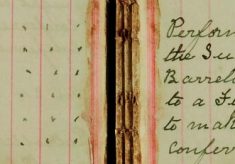 Perfor
the Su
Barrel
to a F
to mak
confer